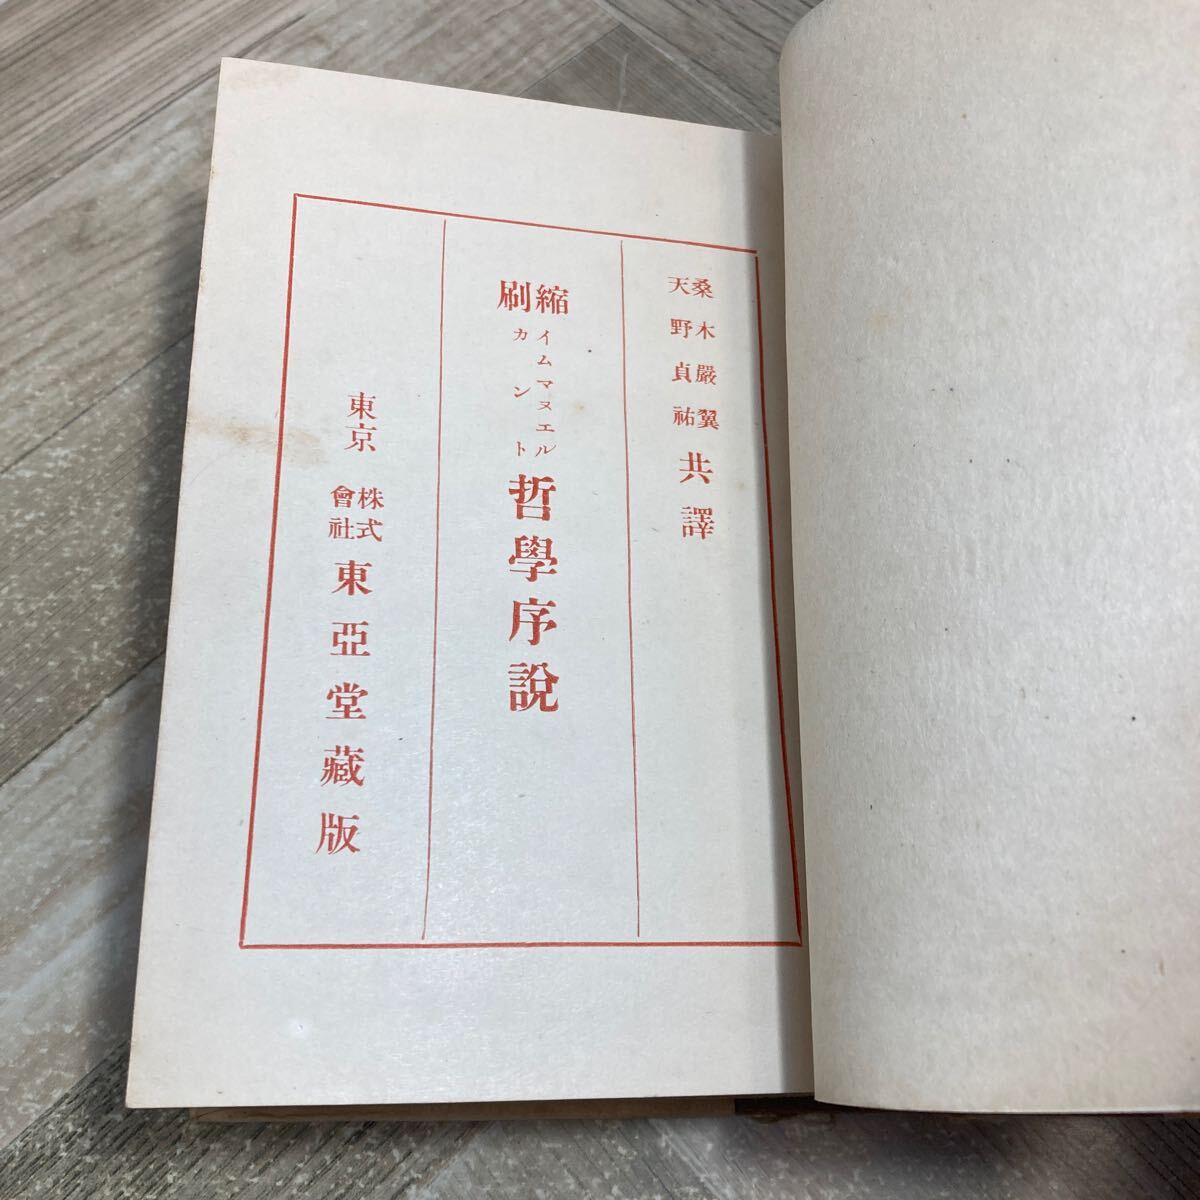 桑木嚴翼
天野貞祐
共譯
縮刷
イムマヌエル
カント
哲學序說
東京
株式
會社
東亞堂藏版